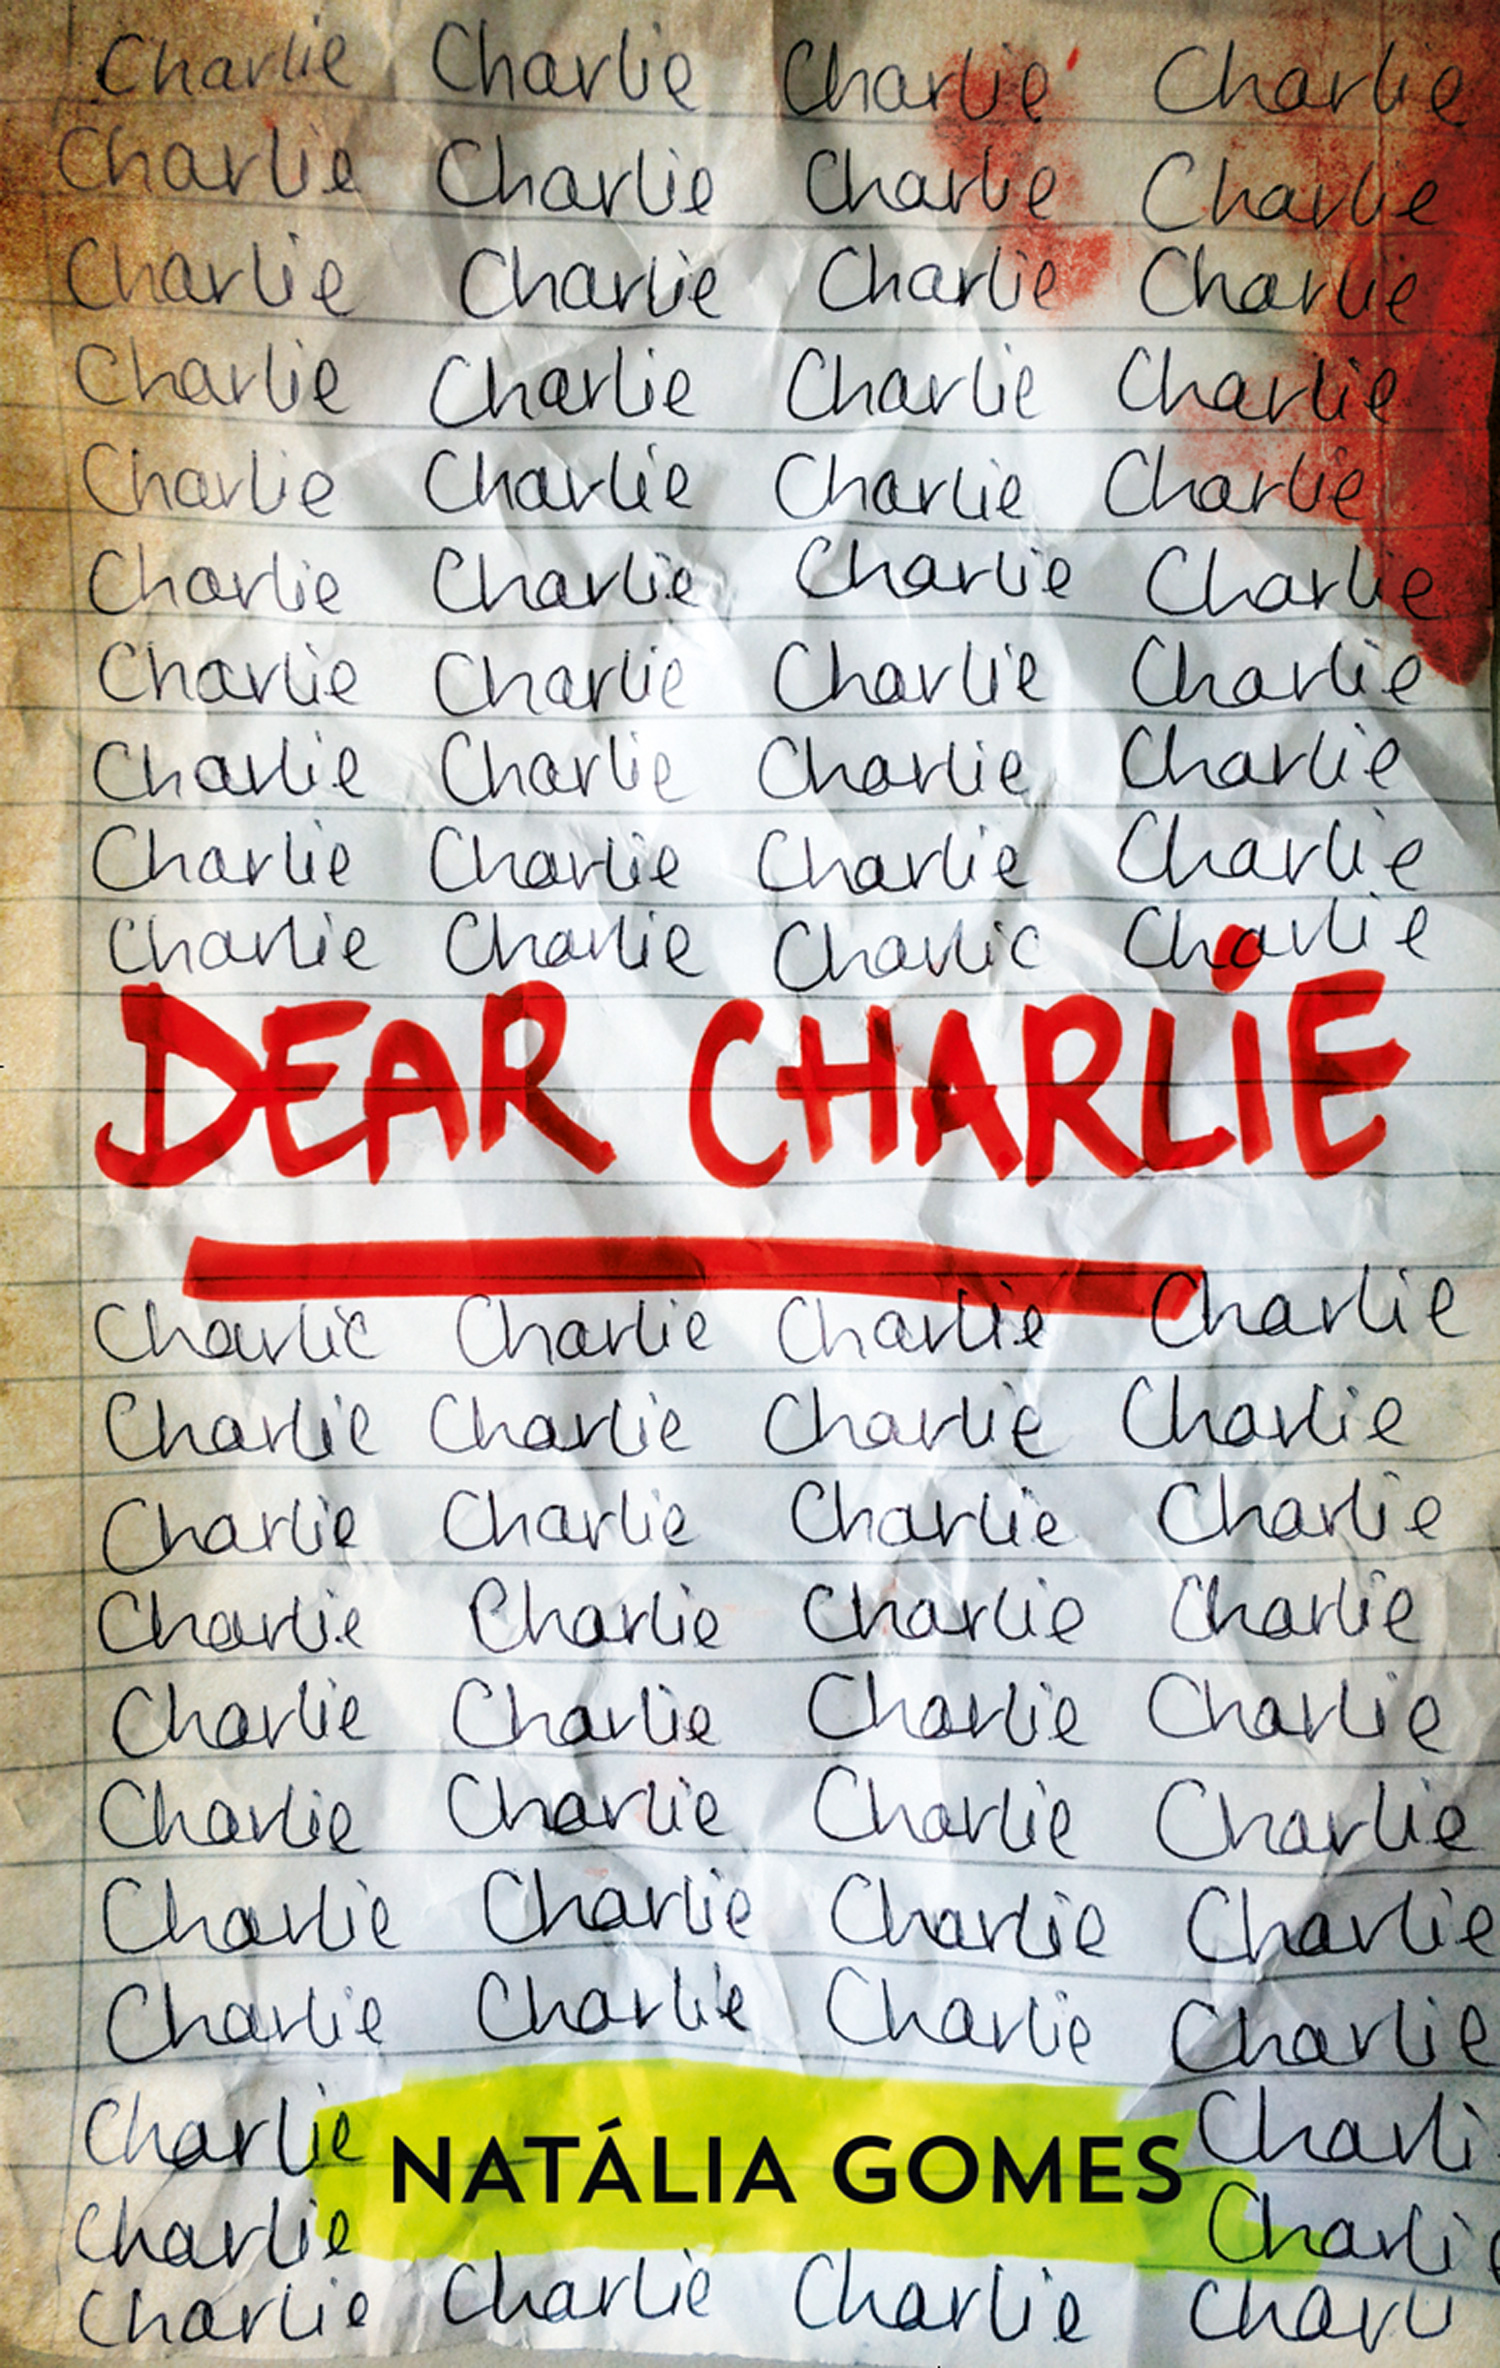 Charlie Charlie Charlie Charlie
Charlie Charlie Charlie Charlie
Charlie Charlie Charlie Charlie
Charlie Charlie Charlie Charlie
Charlie Charlie Charlie Charlie
Charlie Charlie Charlie Charlie
Charlie Charlie Charlie Charlie
Charlie Charlie Charlie Charlie
Charlie Charlie Charlie Charlie
Charlie Charlie Charlie Charlie
DEAR CHARLiE
Charlie Charlie Charlie Charlie
Charlie Charlie Charlie Charlie
Charlie Charlie Charlie Charlie
Charlie Charlie Charlie Charlie
Charlie Charlie Charlie Charlie
Charlie Charlie Charlie Charlie
Charlie Charlie Charlie Charlie
Charlie Charlie Charlie Charlie
Charlie Charli
NATÁLIA GOMES
Charlie Charlie
Charlie Charlie Charlie Charli